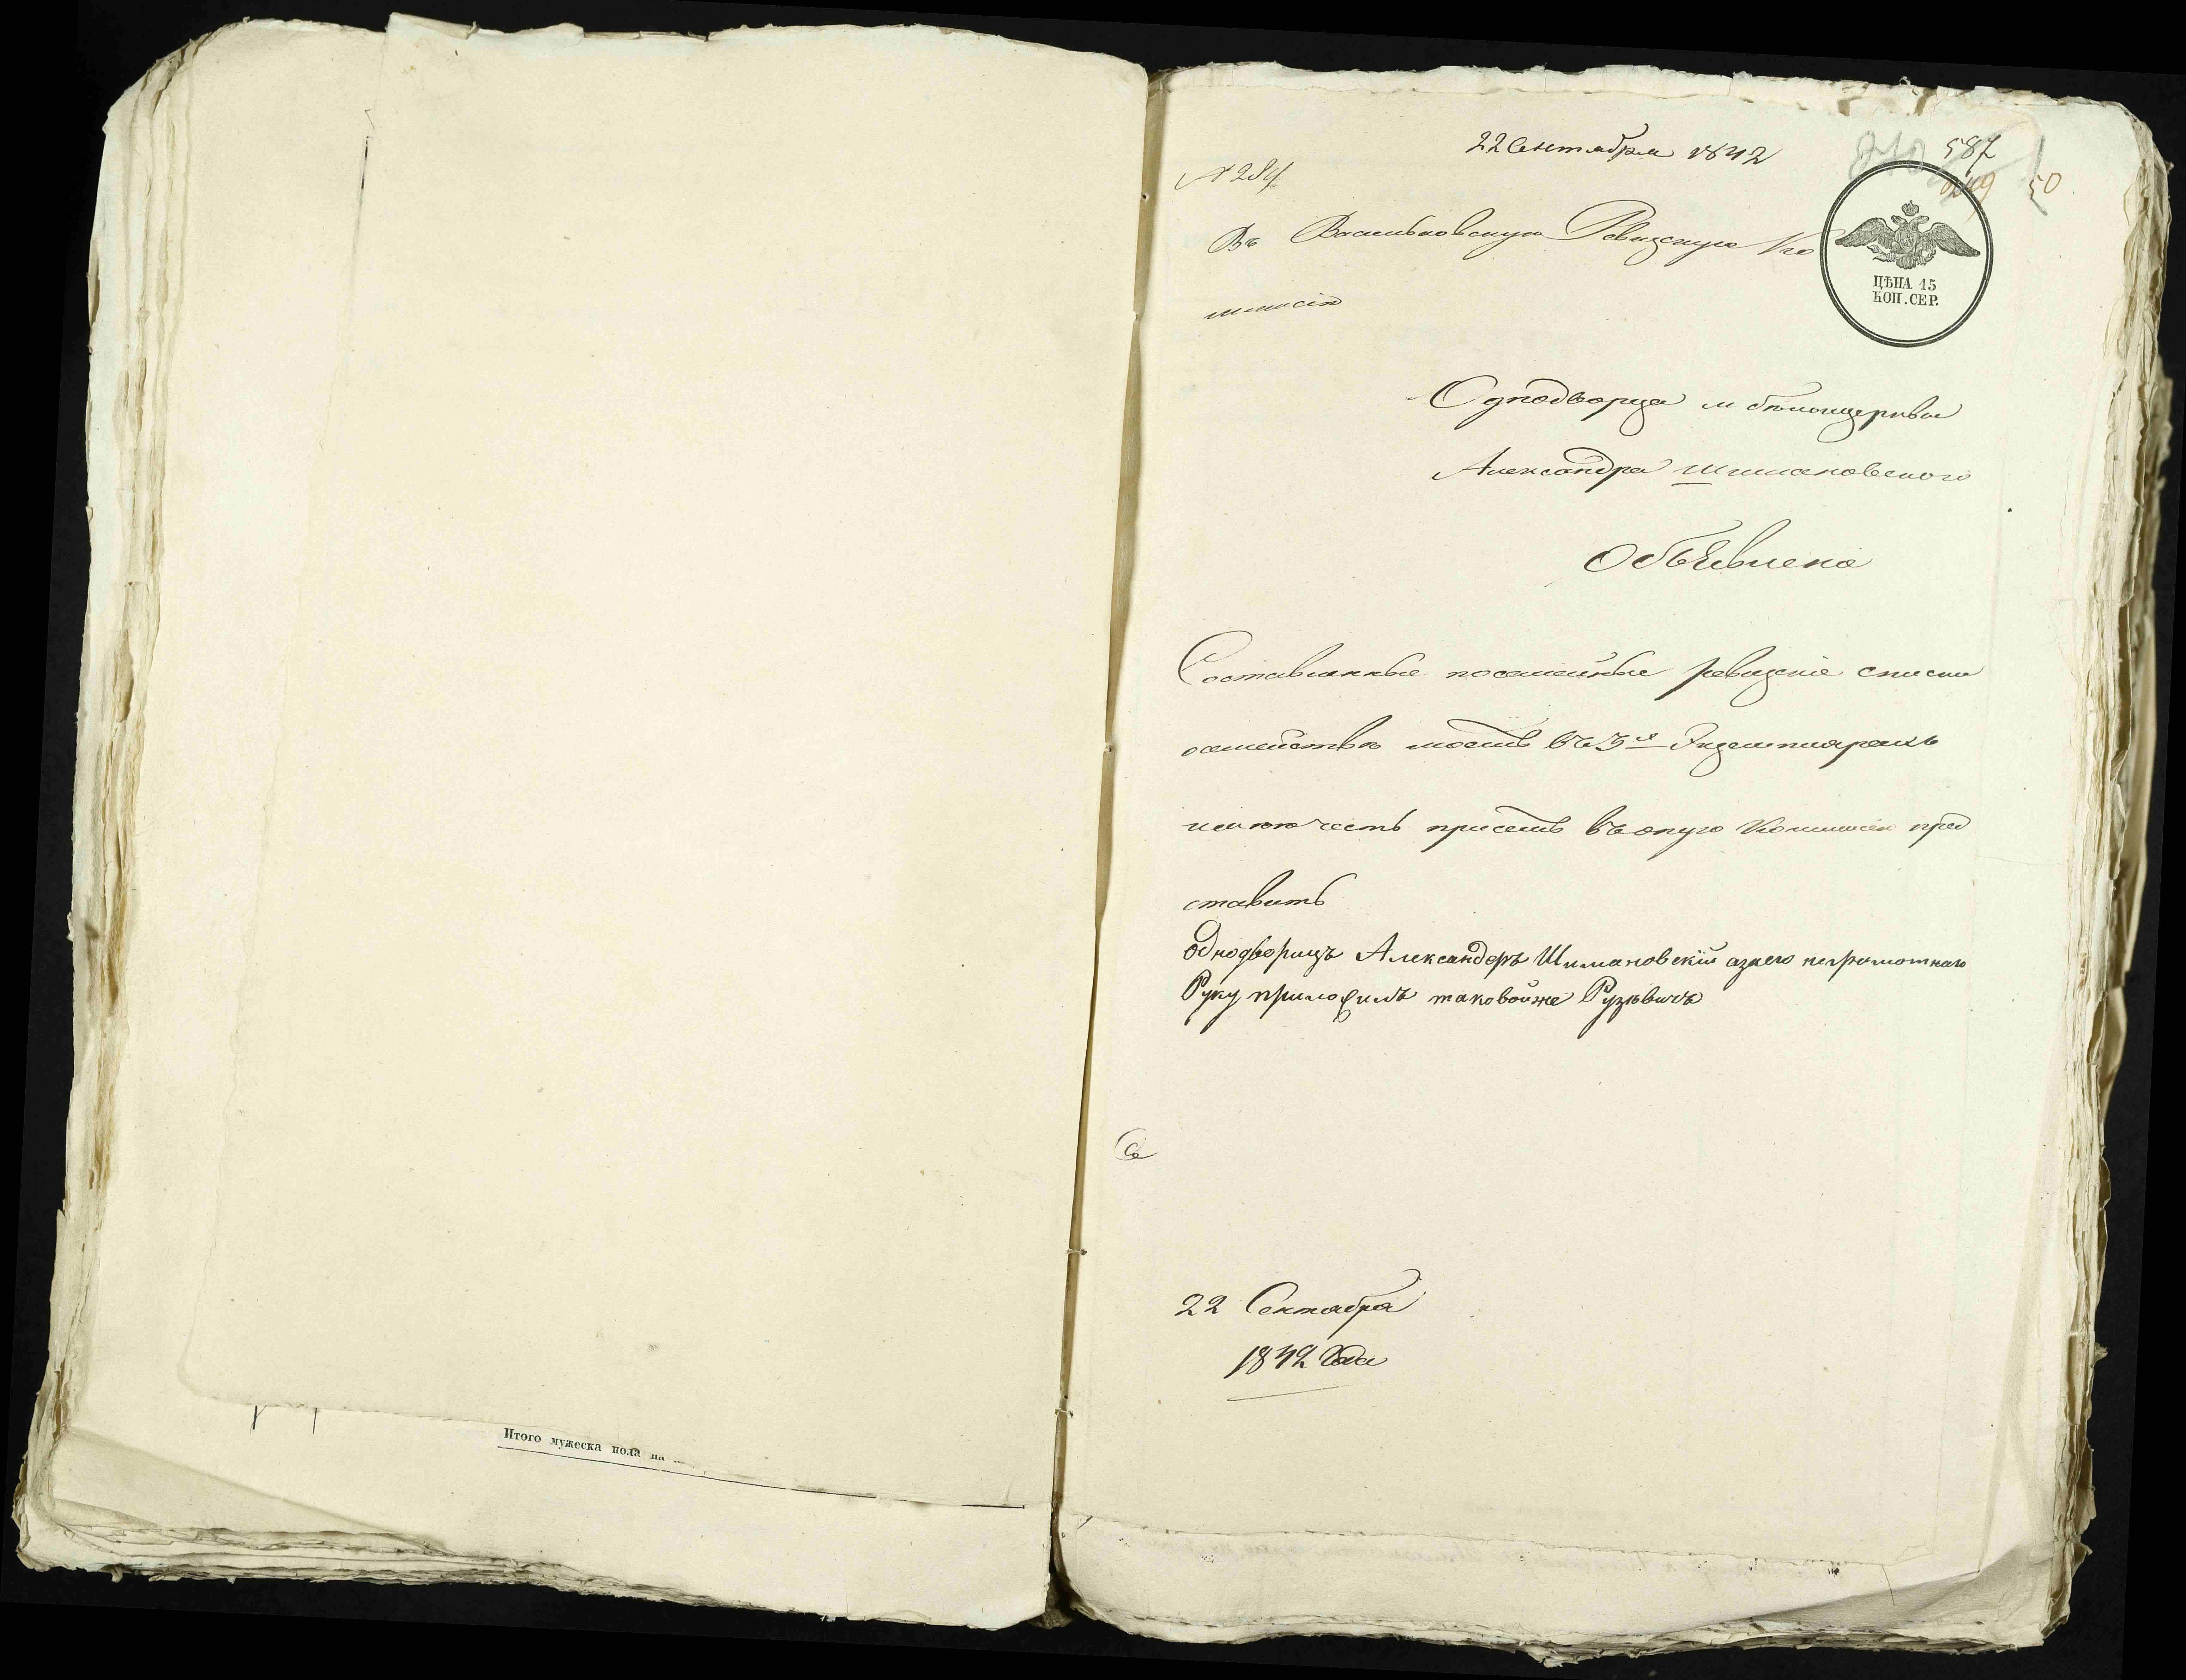 Итого мужеска пола на
22 Сентября 1842
587
249
50
№ 284
Въ Васильковскую Ревизскую Ко
мисію
ЦѢНА 15
КОП. СЕР.
Однодворца м Бѣлоцеркви
Александра Шимановскаго
Объевлено
Составленные посемейные ревизкіе списки
осемействѣ моемъ въ 3х Экземплярахъ
имѣю честь присемъ въ оную Комисію пред
ставить
Однодворецъ Александеръ Шимановскій азаего неграмотнаго
Руку приложилъ таковойже
22 Сентабра
1842 Года